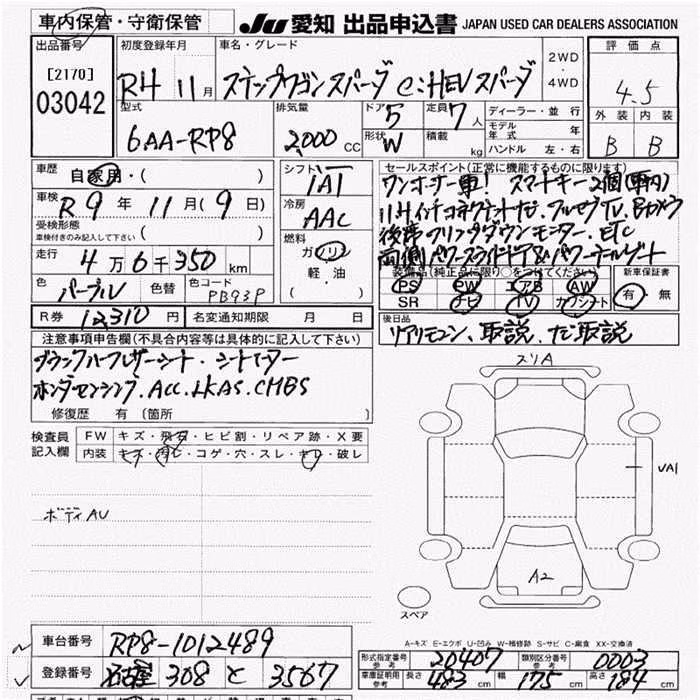 車内保管・守衛保管
JU 愛知 出品申込書 JAPAN USED CAR DEALERS ASSOCIATION
出品番号 初度登録年月 車名・グレード 2WD ・ 4WD 評価点
[2170]
03042
R4 11月 ステップワゴンスパーダ e:HEVスパーダ
4.5
型式 排気量 ドア 5 定員 7人 ディーラー・並行 外装 内装
6AA-RP8 2,000 CC 形状 W 積載 kg モデル年式 年 B B
ハンドル 左・右
車歴 自家用・( ) シフト IAT
セールスポイント(正常に機能するものに限ります)
車検 R9年 11月(9日) 冷房 AAC
ワンオーナー車! スマートキー2個(車内)
受検形態
車検付きのみ記入して下さい ( )
11.4インチコネクトナビ.フルセグTV.Bカメラ
燃料 ガソリン 軽・油 ( )
後席フリップダウンモニター.ETC
走行 4万6千350km
両側パワースライドドア&パワーテールゲート
色 パープル 色替 色コード PB93P
装備品(純正品に限り○をつけてください) 新車保証書
PS PW エアB AW 有・無
SR ナビ TV カワシート
R券 12,310円 名変通知期限 月 日
後日品
リアリモコン、取説、ナビ取説
注意事項申告欄(不具合内容等は具体的に記入して下さい)
ブラックハーフレザーシート.シートヒーター
ホンダセンシング.ACC.LKAS.CMBS
修復歴 有(箇所 )
スリA
検査員記入欄 FW キズ・飛石・ヒビ割・リペア跡・X要
内装 キズ・汚レ・コゲ・穴・スレ・キレ・破レ
VA1
ボディAU
A2
スペア
A-キズ E-エクボ U-凹み W-補修跡 S-サビ C-腐食 XX-交換済
車台番号 RP8-1012489
形式指定番号 参考 20407 類別区分番号 参考 0003
登録番号 名古屋 308 と 3567
車庫証明用 参考 長さ 483cm 幅 175cm 高さ 184cm